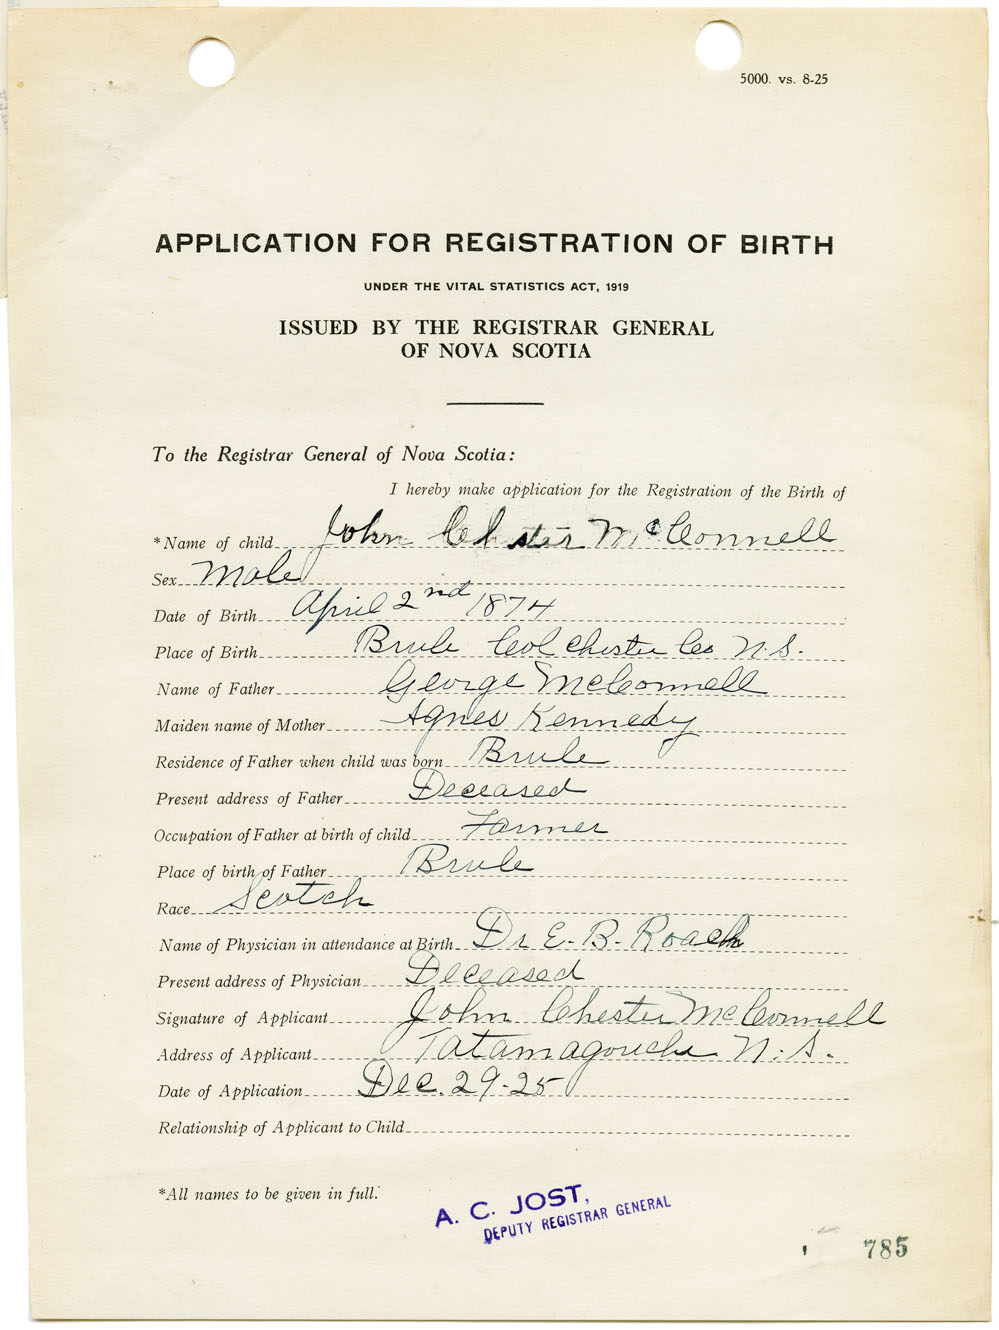 5000. vs. 8-25
APPLICATION FOR REGISTRATION OF BIRTH
UNDER THE VITAL STATISTICS ACT, 1919
ISSUED BY THE REGISTRAR GENERAL
OF NOVA SCOTIA
To the Registrar General of Nova Scotia:
I hereby make application for the Registration of the Birth of
*Name of child John Chester McConnell
Sex Male
Date of Birth April 2nd 1874
Place of Birth Brule Colchester Co N.S.
Name of Father George McConnell
Maiden name of Mother Agnes Kennedy
Residence of Father when child was born Brule
Present address of Father Deceased
Occupation of Father at birth of child Farmer
Place of birth of Father Brule
Race Scotch
Name of Physician in attendance at Birth Dr E. B. Roach
Present address of Physician Deceased
Signature of Applicant John Chester McConnell
Address of Applicant Tatamagouche N.S.
Date of Application Dec. 29-25
Relationship of Applicant to Child
*All names to be given in full.
A. C. JOST,
DEPUTY REGISTRAR GENERAL
785